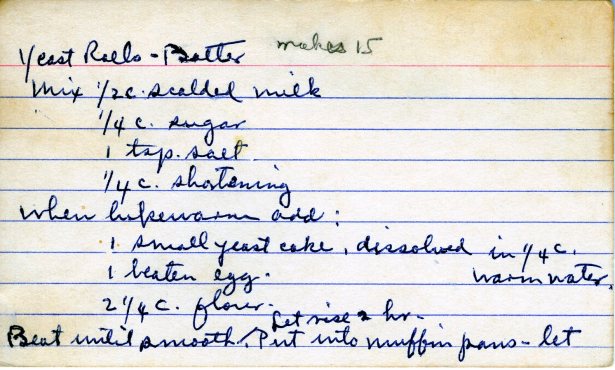 Yeast Rolls - Batter makes 15
Mix 1/2 c. scalded milk
1/4 c. sugar
1 tsp. salt.
1/4 c. shortening
when lukewarm add:
1 small yeast cake, dissolved in 1/4 c.
warm water.
1 beaten egg.
2 1/4 c. flour.
Let rise 2 hr.
Beat until smooth. Put into muffin pans - let